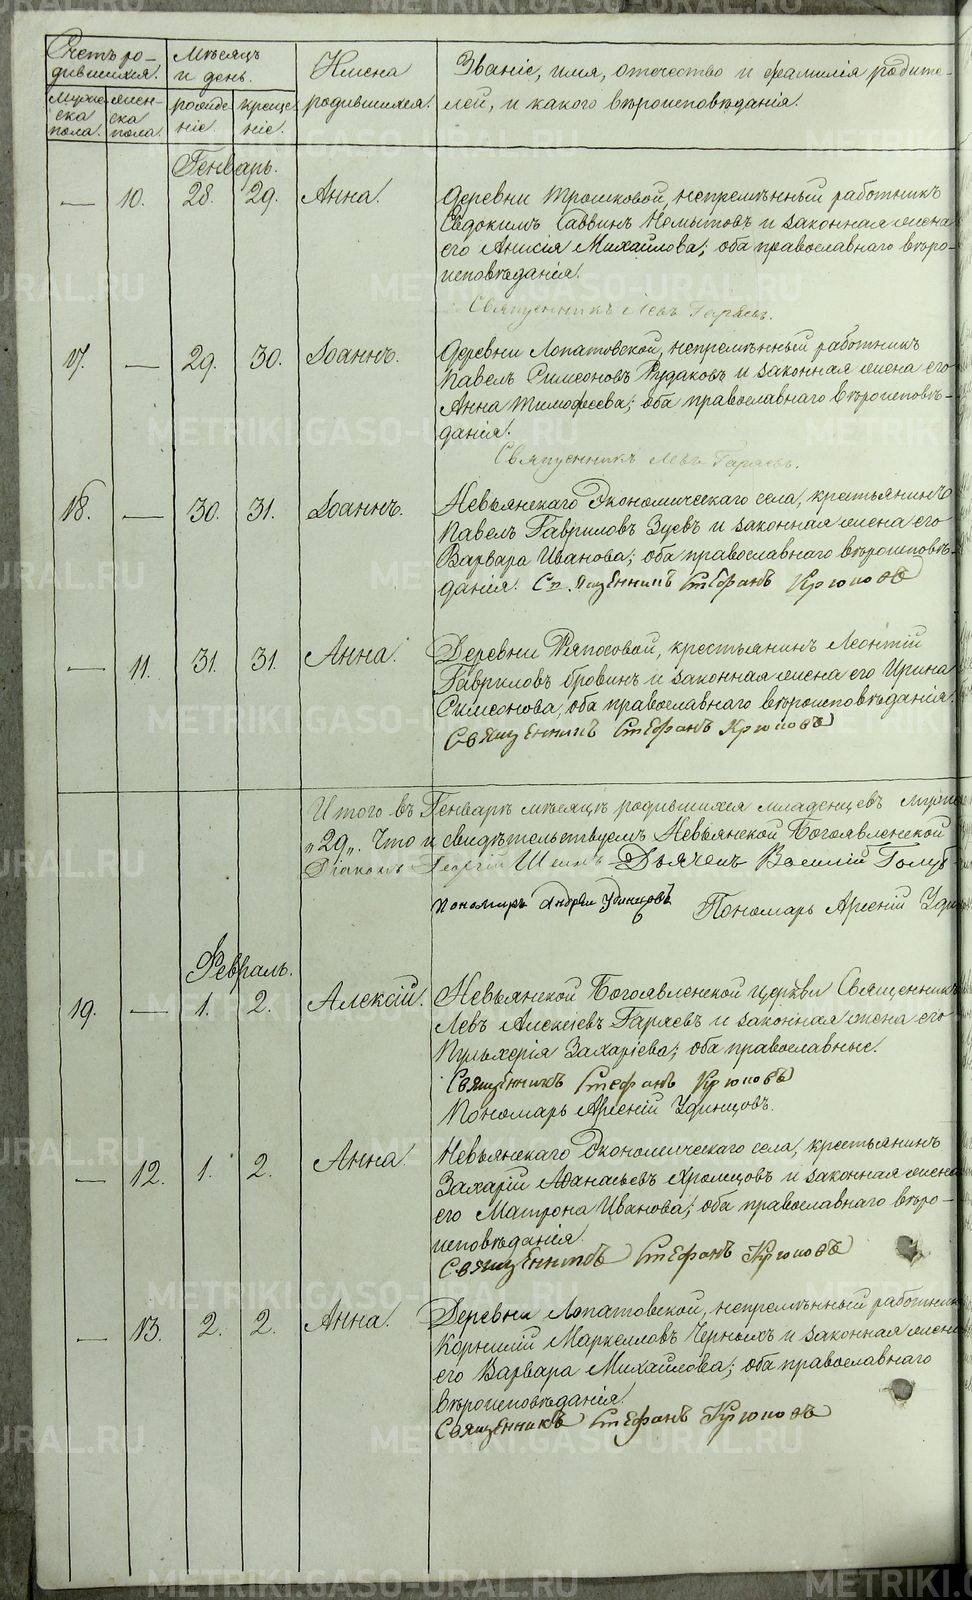 Счетъ ро-
дившихся.
Мѣсяцъ
и день.
Имена
родившихся.
Званіе, имя, отечество и фамилія родите-
лей, и какого вѣроисповѣданія.
Муже-
ска
пола.
Жен-
ска
пола.
рожде
ніе.
креще
ніе.
Генварь.
— 10. 28. 29. Анна.
Деревни Трошковой, непремѣнный работникъ
Евдокимъ Саввинъ Немытовъ и законная жена
его Анисія Михайлова; оба православнаго вѣро-
исповѣданія.
Священникъ Левъ Гаряевъ.
17. — 29. 30. Іоаннъ.
Деревни Лопатовской, непремѣнный работникъ
Павелъ Симеоновъ Рудаковъ и законная жена его
Анна Тимофеева; оба православнаго вѣроисповѣ-
данія.
Священникъ Левъ Гаряевъ.
18. — 30. 31. Іоаннъ.
Невьянскаго Экономическаго села, крестьянинъ
Павелъ Гавриловъ Зуевъ и законная жена его
Варвара Иванова; оба православнаго вѣроисповѣ-
данія. Священникъ Стефанъ Крюковъ
— 11. 31. 31. Анна.
Деревни Ряпосовой, крестьянинъ Леонтій
Гавриловъ бровинъ и законная жена его Ирина
Симеонова, оба православнаго вѣроисповѣданія.
Священникъ Стефанъ Крюковъ
Итого въ Генварѣ мѣсяцѣ родившихся младенцевъ
„29„. Что и свидѣтельствуемъ Невьянской Богоявленской
Діаконъ Георгій Дьячекъ Василій Голуб-
Пономарь Андрей Удинцовъ Пономарь Арсеній Удин
Февраль.
19. — 1. 2. Алексій.
Невьянской Богоявленской церкви Священникъ
Левъ Алексіевъ Гаряевъ и законная жена его
Пульхерія Захаріева; оба православные.
Священникъ Стефанъ Крюковъ
Пономарь Арсеній Удинцовъ.
— 12. 1. 2. Анна.
Невьянскаго Экономическаго села, крестьянинъ
Захарій Афанасьевъ Хромцовъ и законная жена
его Матрона Иванова; оба православнаго вѣро-
исповѣданія.
Священникъ Стефанъ Крюковъ
— 13. 2. 2. Анна.
Деревни Лопатовской, непремѣнный работникъ
Корнилій Маркелловъ Черныхъ и законная жена
его Варвара Михайлова; оба православнаго
вѣроисповѣданія.
Священникъ Стефанъ Крюковъ
METRIKI.GASO-URAL.RU